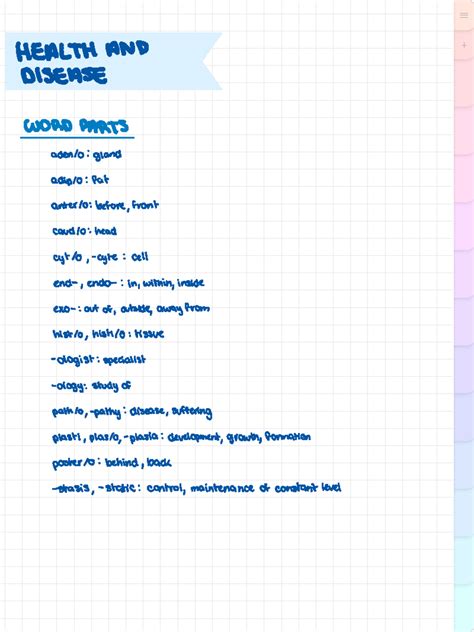 HEALTH AND
DISEASE
WORD PARTS
aden/o: gland
adip/o: fat
anter/o: before, front
caud/o: head
cyt/o, -cyte: cell
end-, endo-: in, within, inside
exo-: out of, outside, away from
hist/o, histi/o: tissue
-ologist: specialist
-ology: study of
path/o, -pathy: disease, suffering
plasti, plas/o, -plasia: development, growth, formation
poster/o: behind, back
-stasis, -static: control, maintenance of constant level